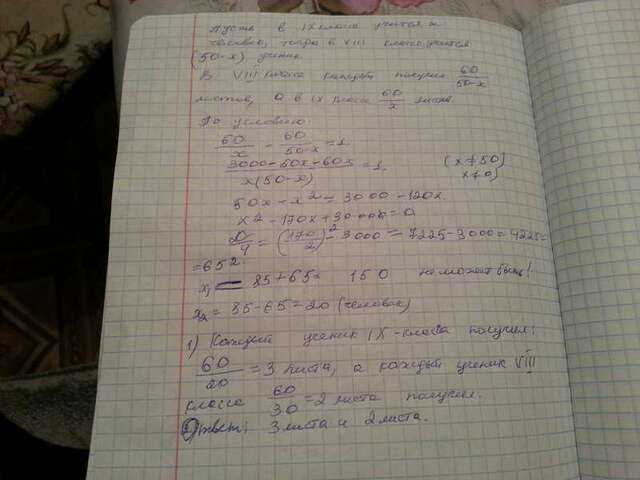 Пусть в IX классе учится x
человек, тогда в VIII классе учатся
(50-x) ученик.
В VIII классе каждый получил 60/50-x
листов, а в IX классе 60/x листов.
По условию
60/x - 60/50-x = 1.
3000-60x-60x / x(50-x) = 1. (x≠50)
x≠0)
50x - x² = 3000 - 120x.
x² - 170x + 3000 = 0
D/4 = (170/2)² - 3000 = 7225 - 3000 = 4225 =
= 65²
x₁ = 85 + 65 = 150 не может быть!
x₂ = 85 - 65 = 20 (человек)
1) Каждый ученик IX - класса получил:
60/20 = 3 листа, а каждый ученик VIII
класса 60/30 = 2 листа получил.
Ответ: 3 листа и 2 листа.